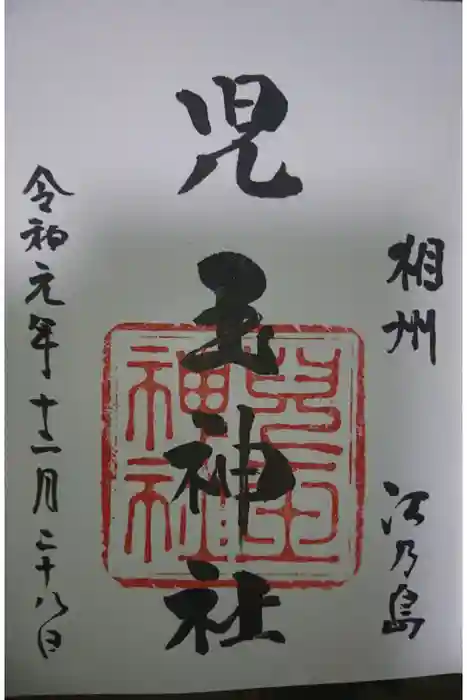 相州 江乃島
児玉神社
兒玉
神社
令和元年十二月二十八日